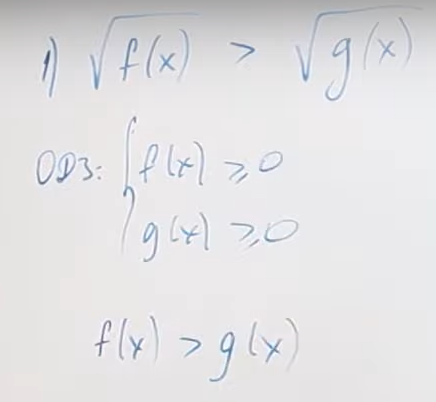 1) √f(x) > √g(x)
ОДЗ: { f(x) ⩾ 0
g(x) ⩾ 0
f(x) > g(x)